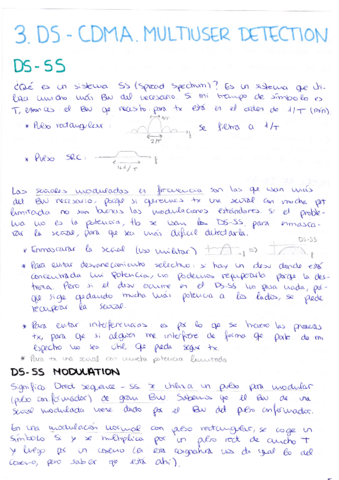 3. DS - CDMA. MULTIUSER DETECTION
DS-SS
¿Qué es un sistema SS (Spread Spectrum)? Es un sistema que uti-
liza mucho más BW del necesario. Si mi tiempo de símbolo es
T, entonces el BW que necesito para tx está en el orden de 1/T (min)
* Pulso rectangular:
se filtra a 1/T
* Pulso SRC:
Las señales moduladas en frecuencia son las que usan más
del BW necesario. porque si queremos tx una señal con mucha pot
limitada no son buenas las modulaciones estándares si el proble-
ma no es la potencia. No se usan las DS-SS, para enmasca-
rar la señal, para que sea más difícil detectarla.
DS-SS
* Enmascarar la señal (uso militar)
* Para evitar desvanecimiento selectivo: si hay un desv donde está
concentrada mi potencia, no podemos recuperarlo porque la des-
troza. Pero si el desv ocurre en el DS-SS no pasa nada, por-
que sigue quedando mucha más potencia a los lados, se puede
recuperar la señal.
* Para evitar interferencias es por lo que se hacen los
tx, para que si alguien me interfiere de forma que parte de mi
espectro no sea útil, que pueda seguir tx.
* Para tx una señal con mucha potencia limitada
DS-SS MODULATION
Significa Direct sequence - SS se utiliza un pulso para modular
(pulso conformador) de gran BW. Sabemos que el BW de una
señal modulada viene dado por el BW del pulso conformador.
En una modulación normal con pulso rectangular, se coge un
símbolo Si y se multiplica por un pulso rect de ancho T
y luego por un coseno (en esta asignatura nos da igual lo del
coseno, pero saber que está ahí).